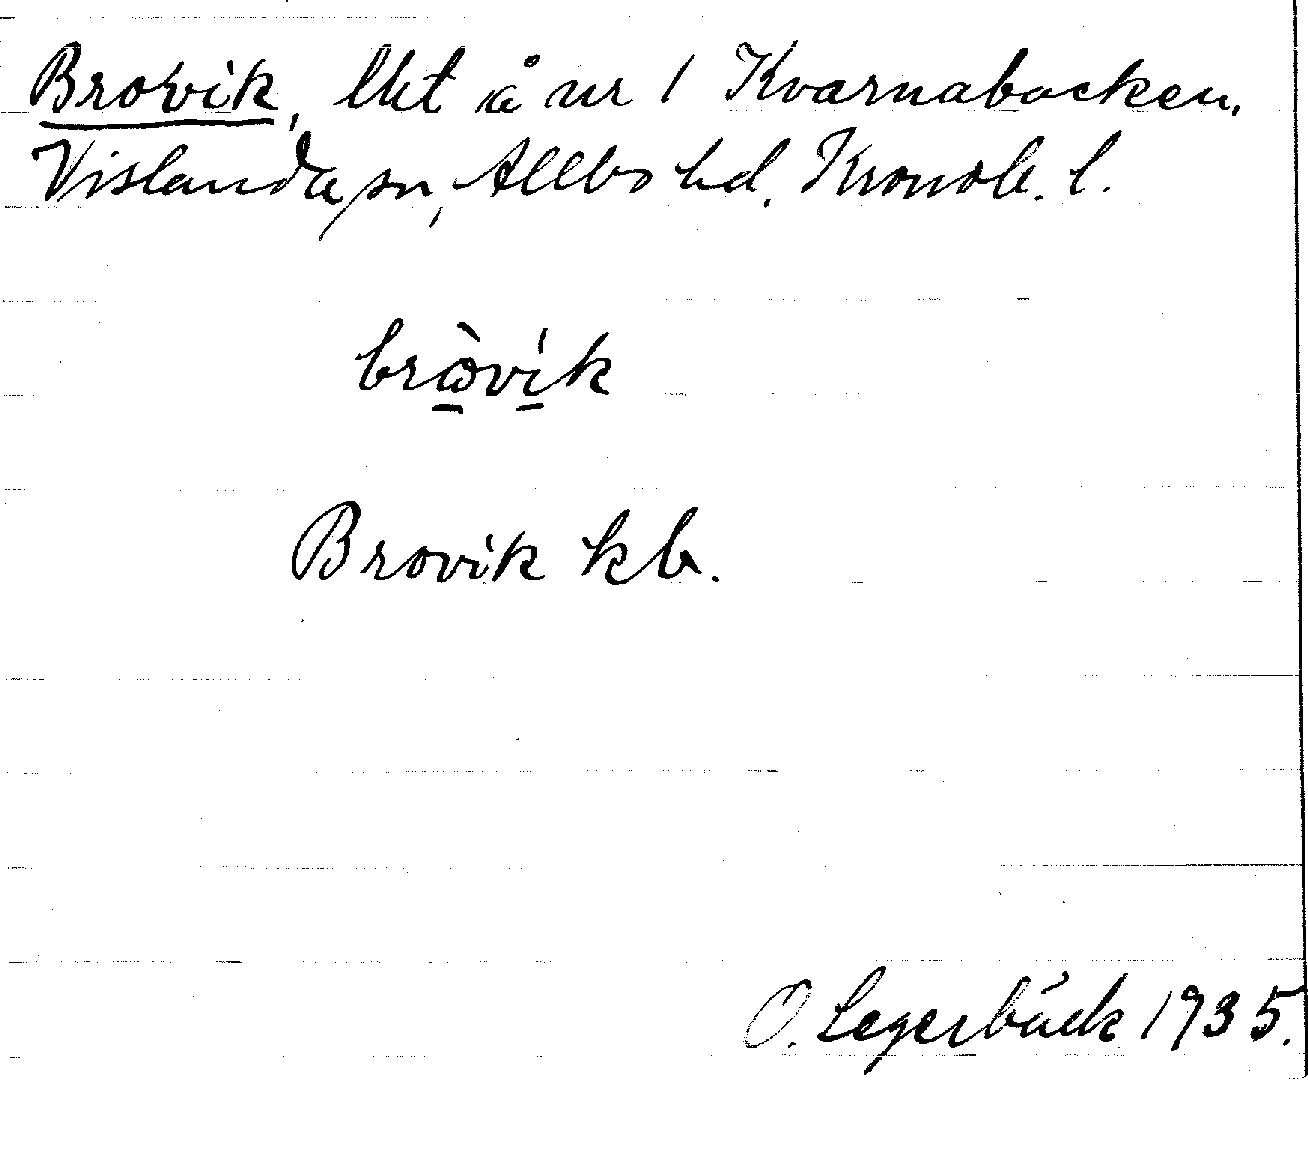 Brovik, lht å nr 1 Kvarnabacken,
Vislanda sn, Allbo hd, Kronob. l.
brὼvík
Brovik kb.
O. Legerbäck 1935.